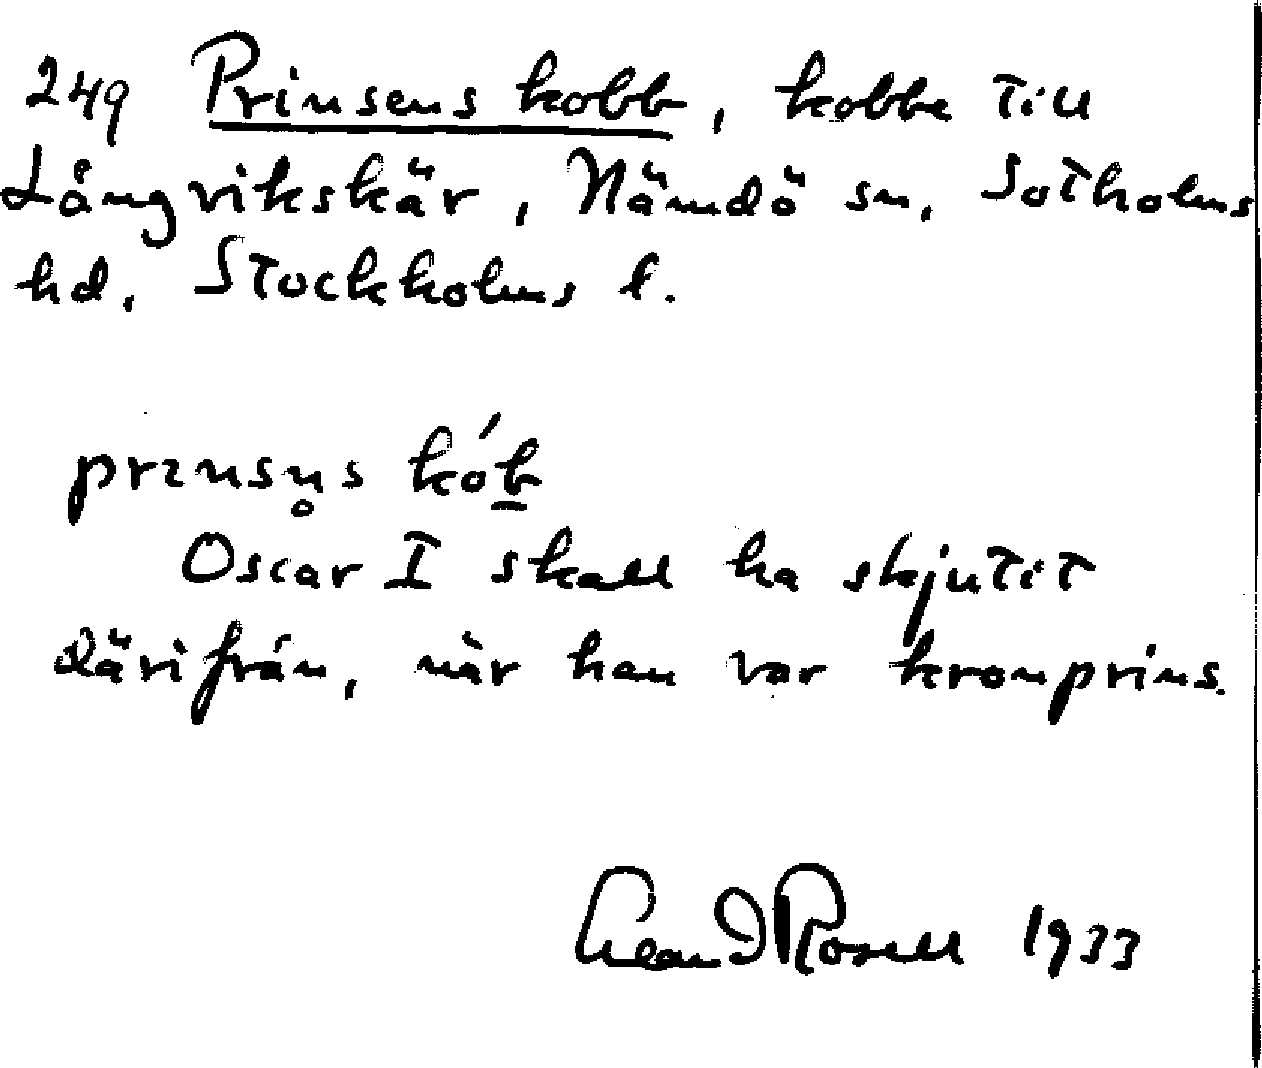 249 Prinsens kobb, kobbe till
Långvikskär, Nämdö sn, Sotholms
hd, Stockholms l.
prɪnsn̥s kób̲
Oscar I skall ha skjutit
därifrån, när han var kronprins.
Rosell 1933